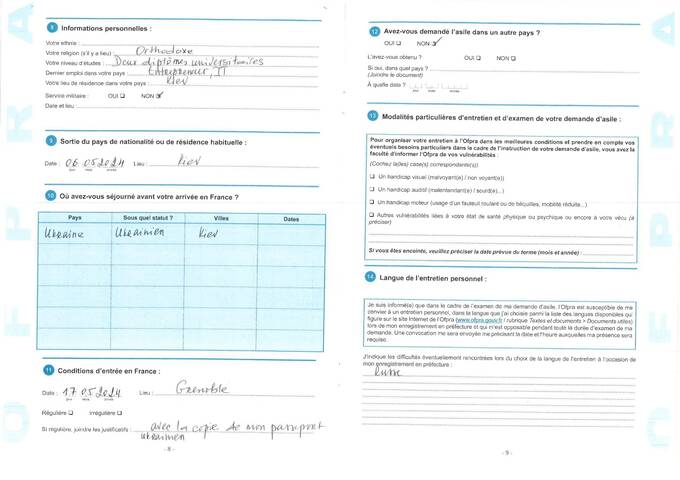 8 Informations personnelles :
Votre ethnie :
Votre religion (s'il y a lieu) : Orthodoxe
Votre niveau d'études : Deux diplômes universitaires
Dernier emploi dans votre pays : Entrepreneur, IT
Votre lieu de résidence dans votre pays : Kiev
Service militaire : OUI ☐ NON ☑
Date et lieu :
9 Sortie du pays de nationalité ou de résidence habituelle :
Date : 06.05.2024 Lieu : Kiev
jour mois année
10 Où avez-vous séjourné avant votre arrivée en France ?
Pays Sous quel statut ? Villes Dates
Ukraine Ukrainien Kiev
11 Conditions d'entrée en France :
Date : 17.05.2024 Lieu : Grenoble
jour mois année
Régulière ☐ Irrégulière ☐
Si régulière, joindre les justificatifs : avec la copie de mon passport
ukrainien
- 8 -
12 Avez-vous demandé l'asile dans un autre pays ?
OUI ☐ NON ☑
L'avez-vous obtenu ? OUI ☐ NON ☐
Si oui, dans quel pays ?
(Joindre le document)
À quelle date ?
jour mois année
13 Modalités particulières d'entretien et d'examen de votre demande d'asile :
Pour organiser votre entretien à l'Ofpra dans les meilleures conditions et prendre en compte vos
éventuels besoins particuliers dans le cadre de l'instruction de votre demande d'asile, vous avez la
faculté d'informer l'Ofpra de vos vulnérabilités :
(Cochez la(les) case(s) correspondante(s))
☐ Un handicap visuel (malvoyant(e) / non voyant(e))
☐ Un handicap auditif (malentendant(e) / sourd(e)...)
☐ Un handicap moteur (usage d'un fauteuil roulant ou de béquilles, mobilité réduite...)
☐ Autres vulnérabilités liées à votre état de santé physique ou psychique ou encore à votre vécu (à
préciser)
Si vous êtes enceinte, veuillez préciser la date prévue du terme (mois et année) :
14 Langue de l'entretien personnel :
Je suis informé(e) que dans le cadre de l'examen de ma demande d'asile, l'Ofpra est susceptible de me
convier à un entretien personnel, dans la langue que j'ai choisie parmi la liste des langues disponibles qui
figure sur le site Internet de l'Ofpra (www.ofpra.gouv.fr / rubrique Textes et documents > Documents utiles)
lors de mon enregistrement en préfecture et qui m'est opposable pendant toute la durée d'examen de ma
demande. Une convocation me sera envoyée me précisant la date et l'heure auxquelles ma présence sera
requise.
J'indique les difficultés éventuellement rencontrées lors du choix de la langue de l'entretien à l'occasion de
mon enregistrement en préfecture :
Russe
- 9 -
OFPRA
OFPRA